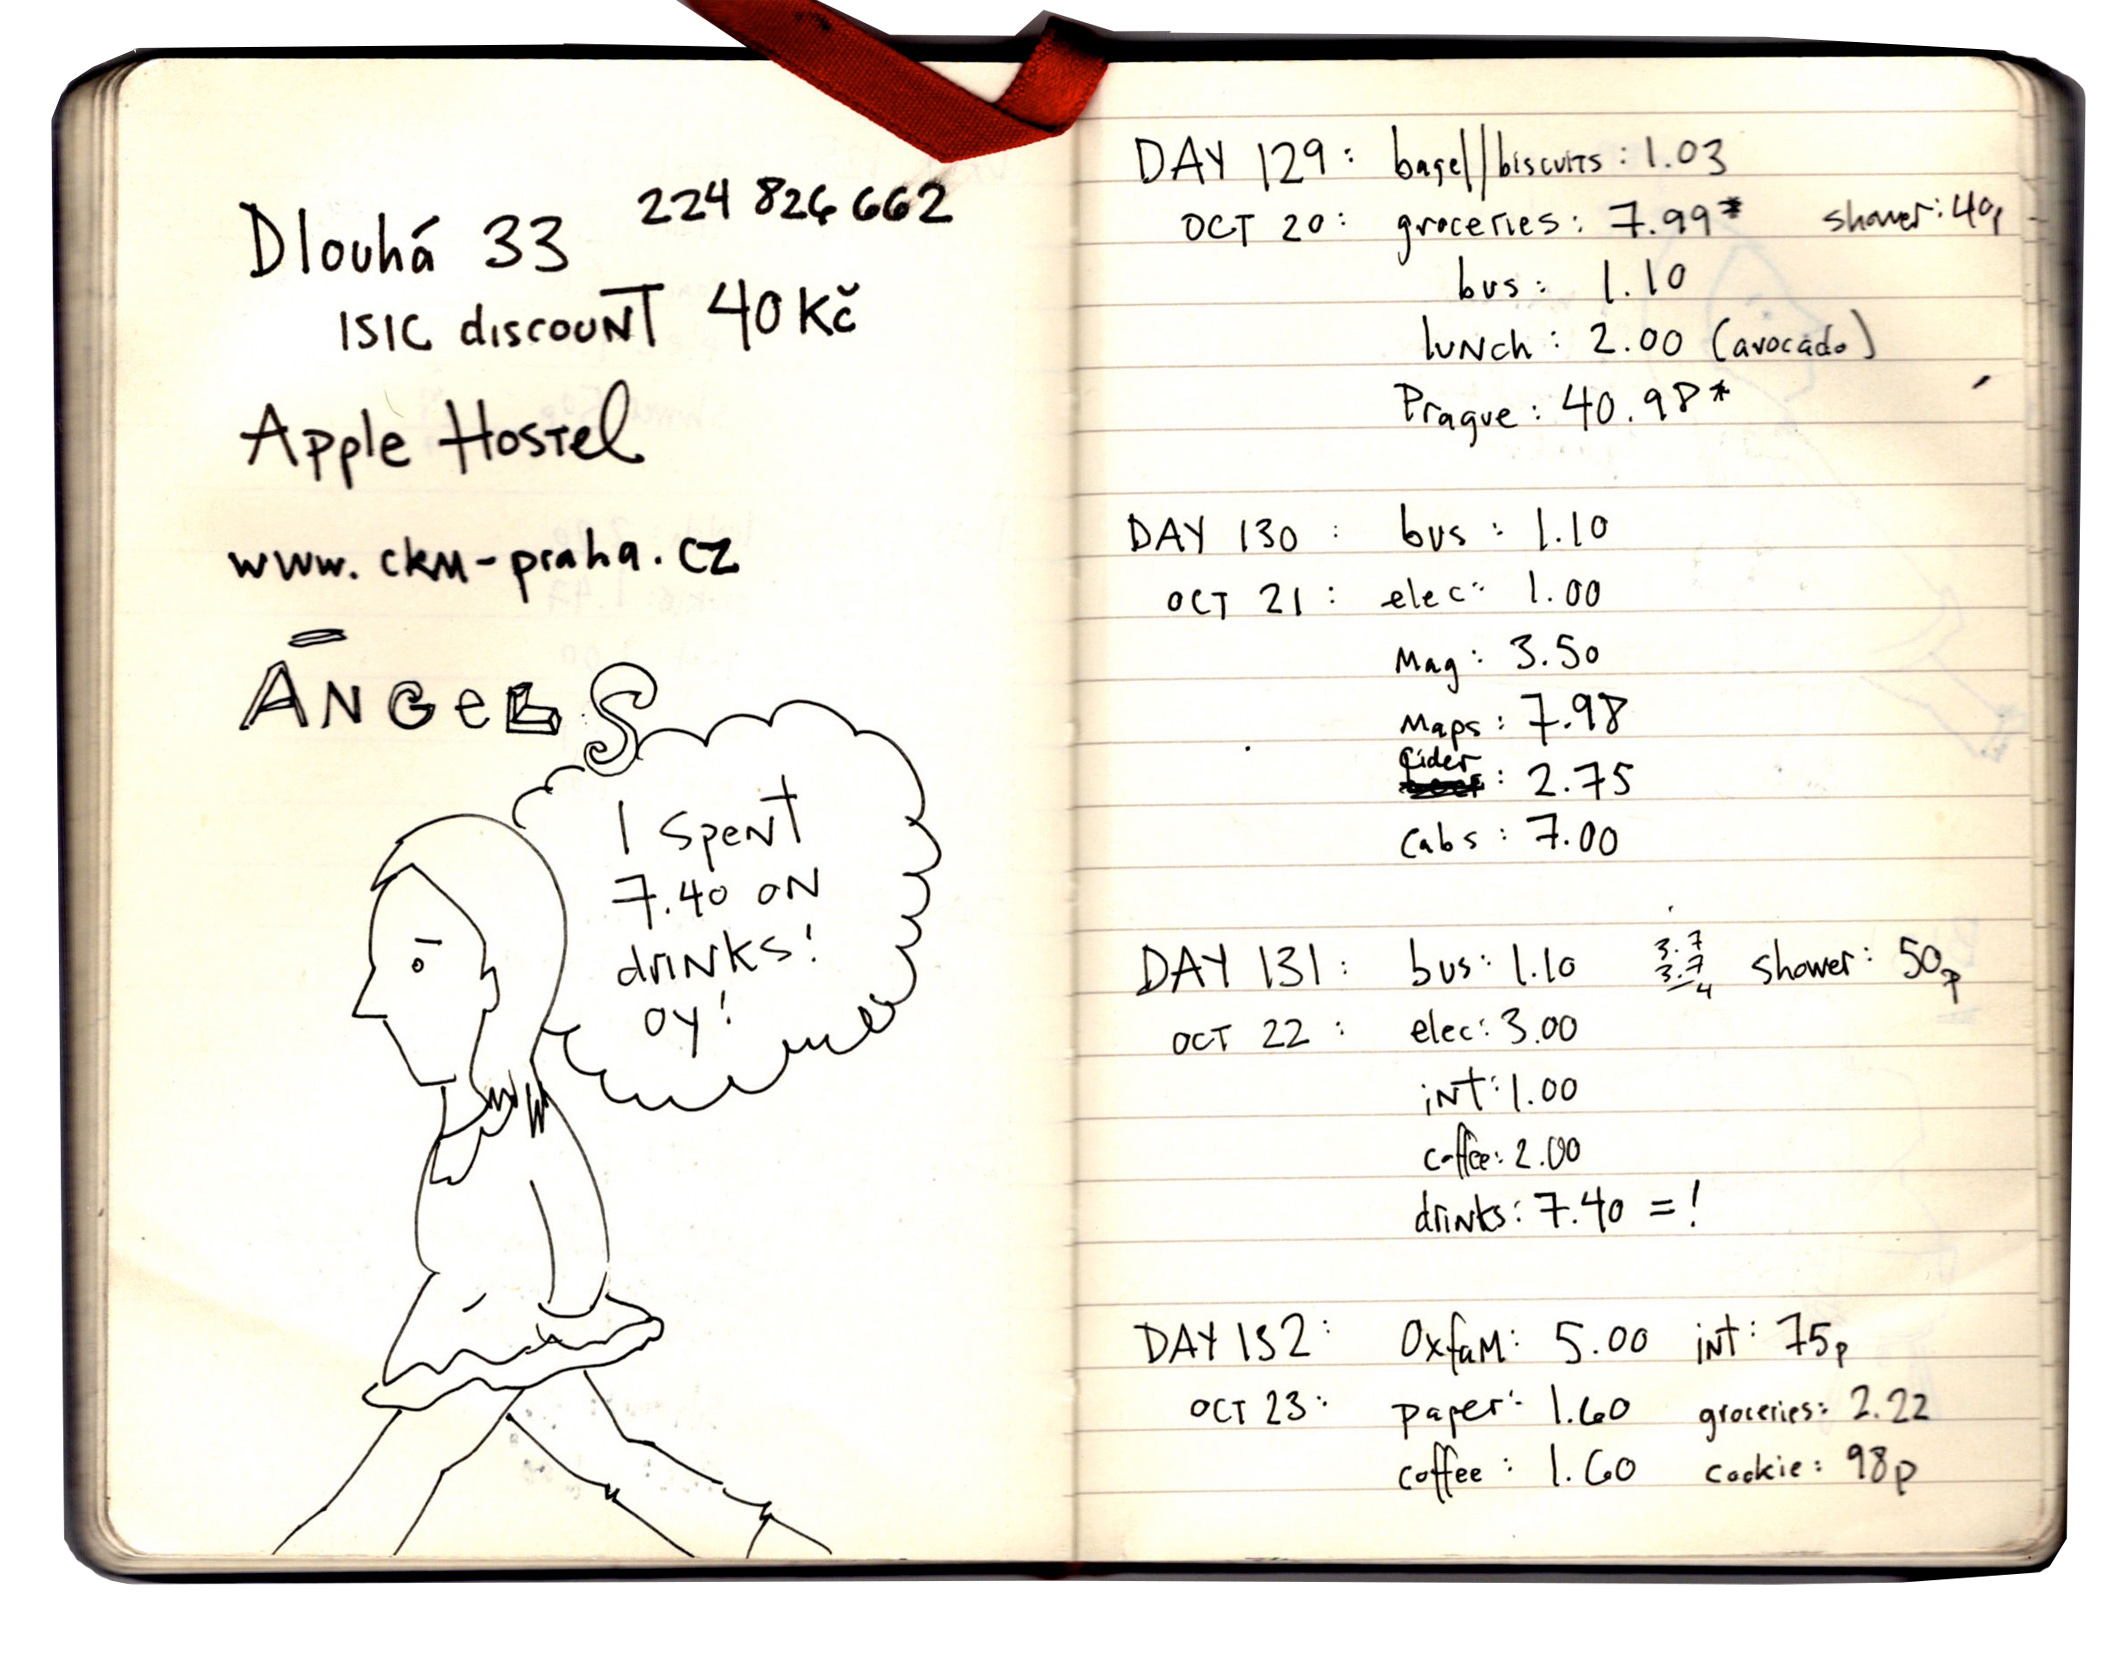 224 826 662
Dlouhá 33
ISIC discount 40 Kč
Apple Hostel
www.ckm-praha.cz
ANGELS
I spent
7.40 on
drinks!
oy!
DAY 129: bagel//biscuits: 1.03
OCT 20: groceries: 7.99* shower: 40p
bus: 1.10
lunch: 2.00 (avocado)
Prague: 40.98*
DAY 130: bus: 1.10
OCT 21: elec: 1.00
Mag: 3.50
Maps: 7.98
cider: 2.75
Cabs: 7.00
DAY 131: bus: 1.10 3.7 shower: 50p
3.7
4
OCT 22: elec: 3.00
int: 1.00
coffee: 2.00
drinks: 7.40 = !
DAY 132: Oxfam: 5.00 int: 75p
OCT 23: paper: 1.60 groceries: 2.22
coffee: 1.60 cookie: 98p